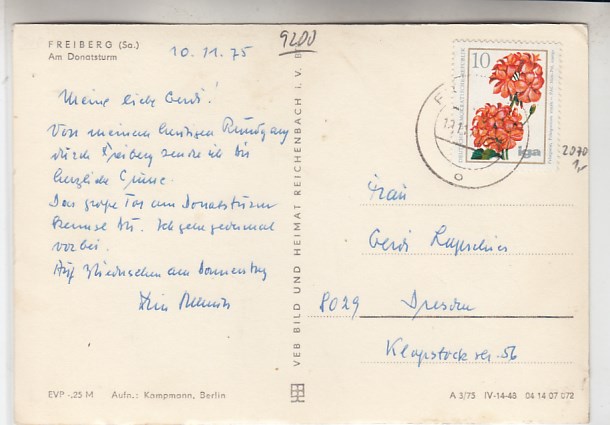 FREIBERG (Sa.)
Am Donatsturm
10.11.75
9200
Meine liebe Gerdi!
Von meinem heutigen Rundgang
durch Freiberg sende ich dir
herzliche Grüße.
Das große Tor am Donatsturm
kennst du. Ich gehe
vorbei.
Auf Wiedersehen am Donnerstag
Dein
VEB BILD UND HEIMAT REICHENBACH I. V.
10
iga
2070
1,-
Frau
Gerdi
8029 Dresden
Klopstockstr. 56
EVP -,25 M Aufn.: Kampmann, Berlin
A 3/75 IV-14-48 04 14 07 072